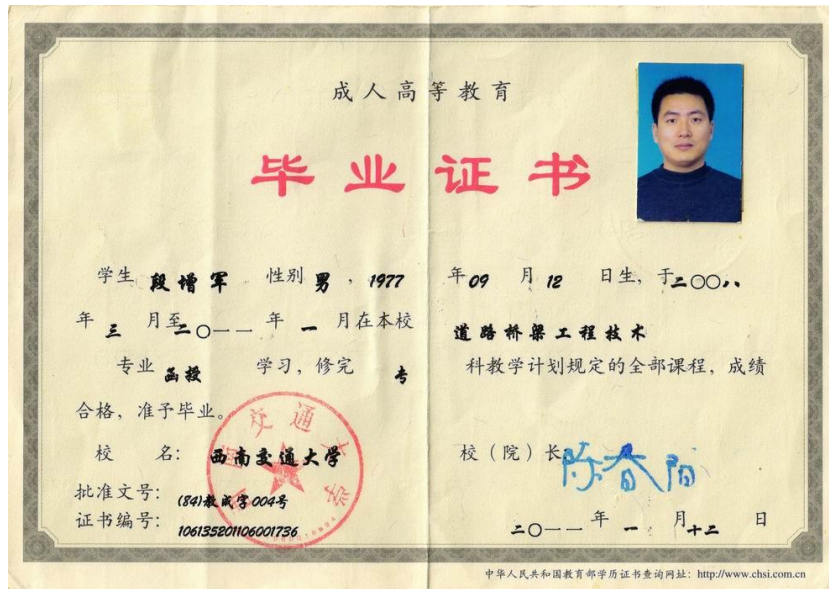 成人高等教育
毕业证书
学生 段增军 性别 男 ，1977 年 09 月 12 日生，于二〇〇八
年 三 月至二〇一一 年 一 月在本校 道路桥梁工程技术
专业 函授 学习，修完 专 科教学计划规定的全部课程，成绩
合格，准予毕业。
校 名： 西南交通大学 校（院）长
陈春阳
批准文号： (84)教成字004号
证书编号： 106135201106001736
二〇一一 年 一 月 十二 日
西南交通大学
中华人民共和国教育部学历证书查询网址： http://www.chsi.com.cn